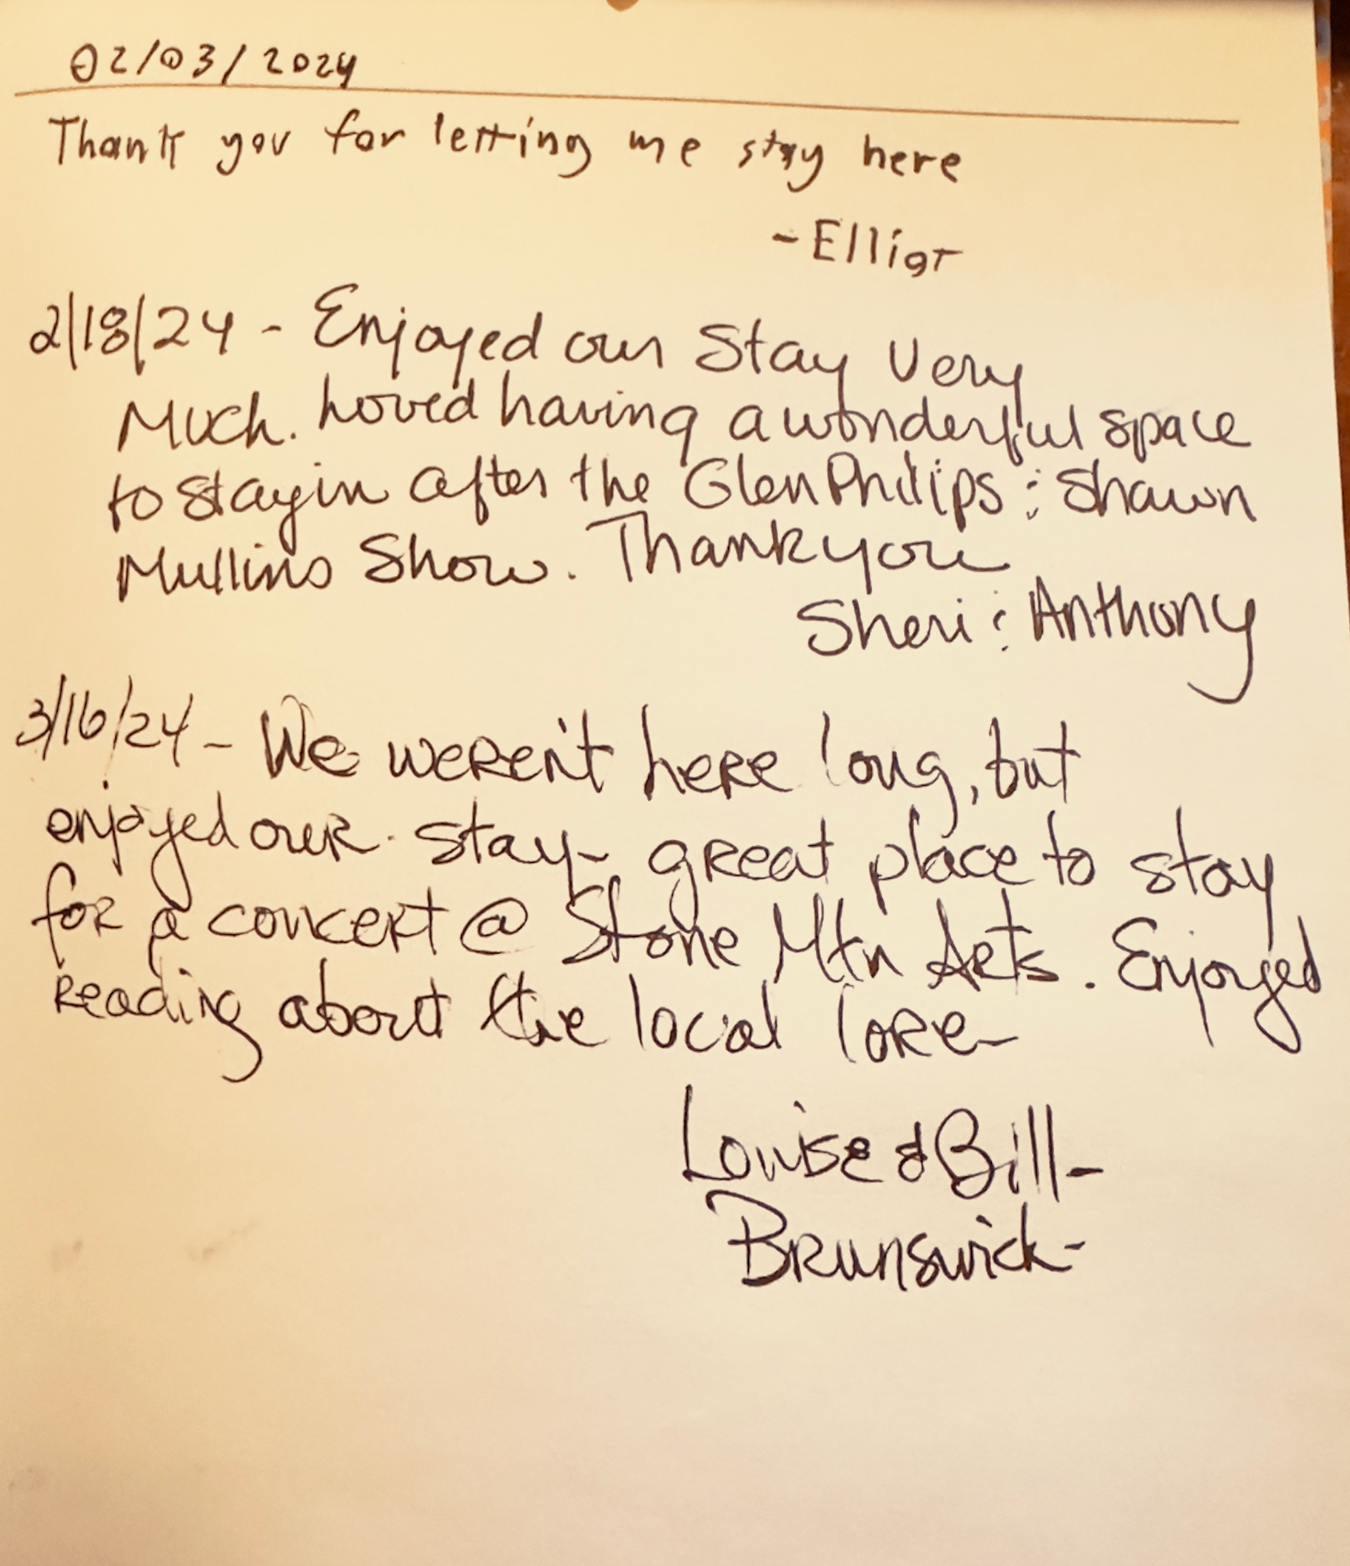 02/03/2024
Thank you for letting me stay here
- Elliot
2/18/24 - Enjoyed our stay very
Much. Loved having a wonderful space
to stay in after the Glen Philips & Shawn
Mullins Show. Thank you
Sheri & Anthony
3/16/24 - We weren't here long, but
enjoyed our stay - great place to stay
for a concert @ Stone Mtn Arts. Enjoyed
reading about the local lore -
Louise & Bill -
Brunswick -